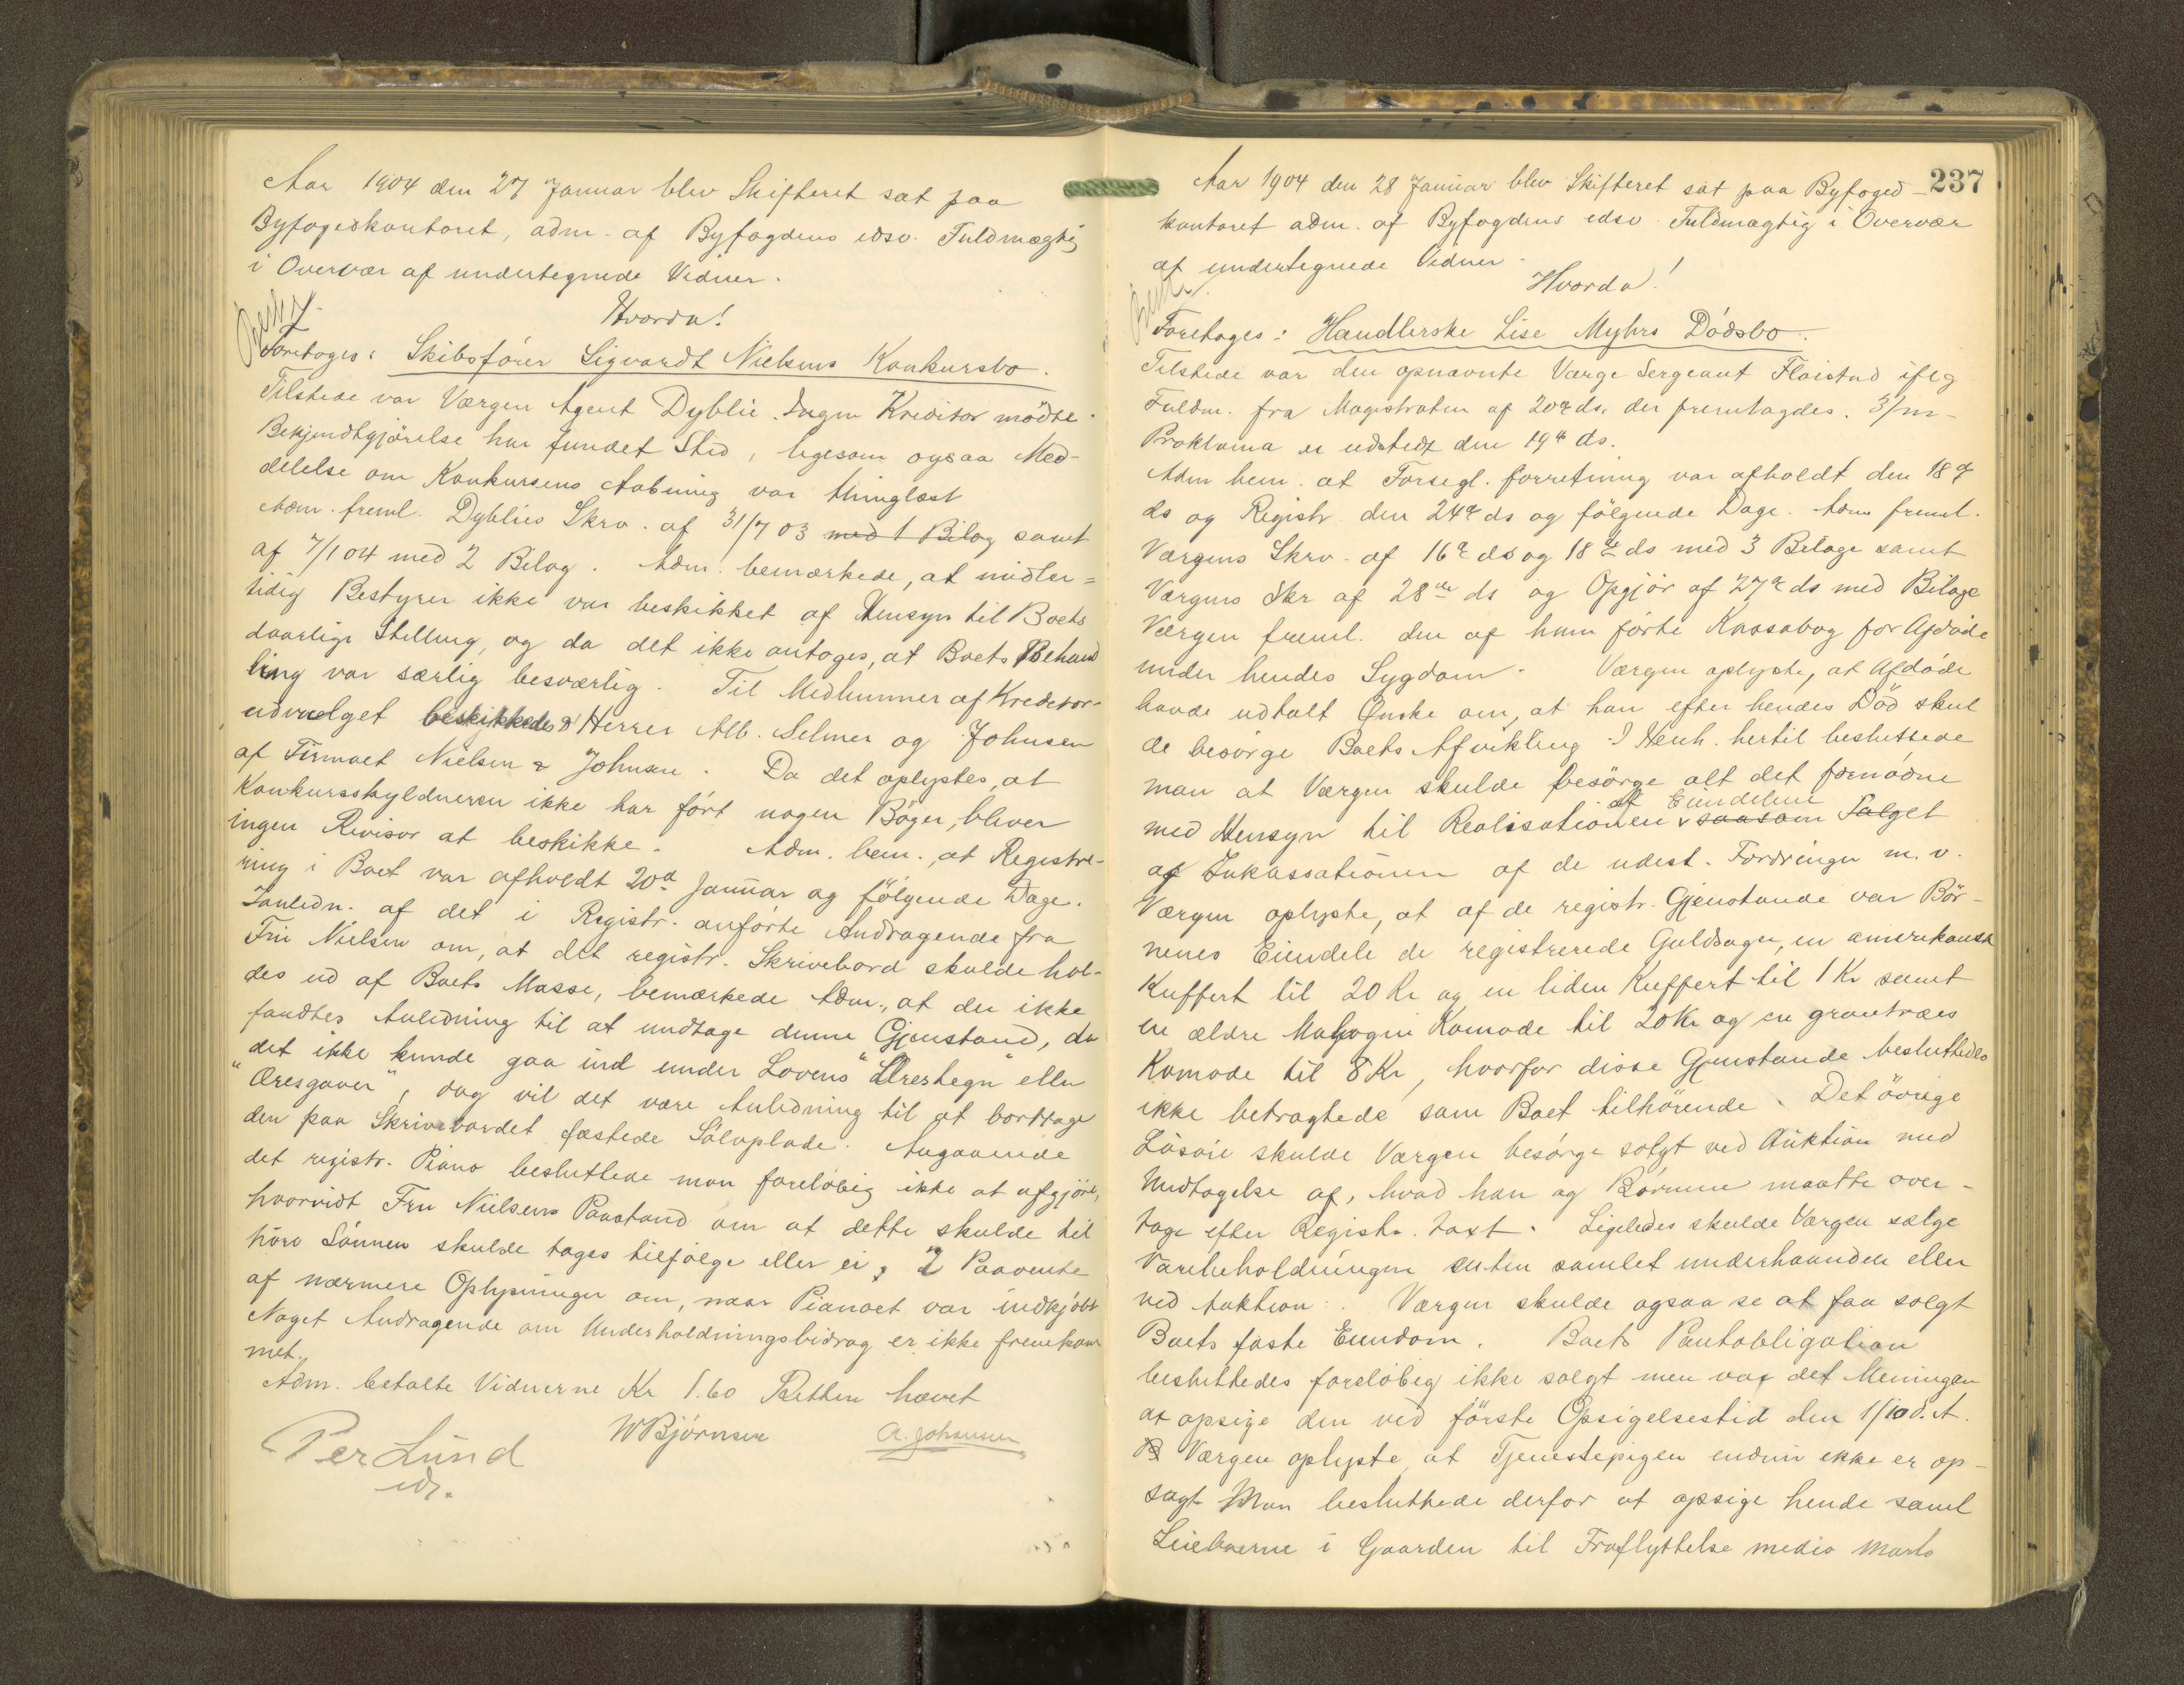 Aar 1904 den 27 Januar blev Skifteret sat paa
Byfogedkontoret, adm. af Byfogdens edsv. Fuldmægtig
i Overvær af undertegnede Vidner.
Hvorda!
Foretoges: Skibsfører Sigvardt Nielsens Konkursbo.
Tilstede var Værgen Agent Dyblie. Ingen Kreditor mødte.
Bekjendtgjørelse har fundet Sted, ligesom ogsaa Med-
delelse om Konkursens Aabning var thinglæst
Adm. freml. Dyblies Skrv. af 31/7 03 med 1 Bilag samt
af 7/1 04 med 2 Bilag. Adm. bemærkede, at midler=
tidig Bestyrer ikke var beskikket af Hensyn til Boets
daarlige Stilling, og da det ikke antoges, at Boets Behand
ling var særlig besværlig. Til Medlemmer af Kreditor-
udvalget beskikkedes Herrer Alb. Selmer og Johnsen
af Firmaet Nielsen & Johnsen. Da det oplystes, at
Konkursskyldneren ikke har ført nogen Bøger, bliver
ingen Revisor at beskikke. Adm. bem., at Registre-
ring i Boet var afholdt 20d Januar og følgende Dage.
I Anledn. af det i Registr. anførte Andragende fra
Fru Nielsen om, at det registr. Skrivebord skulde hol-
des ud af Boets Masse, bemærkede Adm., at der ikke
fandtes Anledning til at undtage denne Gjenstand, da
det ikke kunde gaa ind under Lovens "Ærestegn" eller
"Æresgaver", dog vil det være Anledning til at borttage
den paa Skrivebordet fæstede Sølvplade. Angaaende
det registr. Piano besluttede man foreløbig ikke at afgjøre,
hvorvidt Fru Nielsens Paastand om at dette skulde til
høre Sønnen skulde tages tilfølge eller ei, i Paavente
af nærmere Oplysninger om, naar Pianoet var indkjøbt
Noget Andragende om Underholdningsbidrag er ikke fremkom
met.
Adm. betalte Vidnerne Kr 1.60 Retten hævet
Per Lund W Bjørnsen A. Johansen
edsv.
237
Aar 1904 den 28 Januar blev Skifteret sat paa Byfoged-
kontoret adm. af Byfogdens edsv. Fuldmægtig i Overvær
af undertegnede Vidner.
Hvorda!
Foretoges: Handlerske Lise Myhrs Dødsbo.
Tilstede var den opnævnte Værge Sergeant Fløistad iflg
Fuldm. fra Magistraten af 20de ds. der fremlagdes. 3/m-
Proklama er udstedt den 19de ds.
Adm bem. at Forsegl. forretning var afholdt den 18de
ds og Registr. den 24de ds og følgende Dage. Adm freml.
Værgens Skrv. af 16de ds og 18de ds med 3 Bilage samt
Værgens Skr af 28de ds og Opgjør af 27de ds med Bilage
Værgen freml. den af ham førte Kassabog for Afdøde
under hendes Sygdom. Værgen oplyste, at Afdøde
havde udtalt Ønske om, at han efter hendes Død skul
de besørge Boets Afvikling. I Henh. hertil besluttede
man at Værgen skulde besørge alt det fornødne
af Eiendelene
med Hensyn til Realisationen saasom Salget
af Inkassationen af de udest. Fordringer m. v.
Værgen oplyste, at af de registr. Gjenstande var Bør-
nenes Eiendele de registrerede Guldsager, en amerikansk
Kuffert til 20 Kr og en liden Kuffert til 1 Kr samt
en ældre Mahogni Komode til 20 Kr og en grantræes
Komode til 8 Kr, hvorfor disse Gjenstande besluttedes
ikke betragtede som Boet tilhørende. Det øvrige
Løsøie skulde Værgen besørge solgt ved Auktion med
Undtagelse af, hvad han og Børnene maatte over-
tage efter Registr. taxt. Ligeledes skulde Værgen sælge
Varebeholdningen enten samlet underhaanden eller
ved Auktion. Værgen skulde ogsaa se at faa solgt
Boets faste Eiendom. Boets Pantobligation
besluttedes foreløbig ikke solgt men var det Meningen
at opsige den ved første Opsigelsestid den 1/10 d. A.
B Værgen oplyste, at Tjenestepigen endnu ikke er op-
sagt. Man besluttede derfor at opsige hende samt
Leieboerne i Gaarden til Fraflyttelse medio Marts